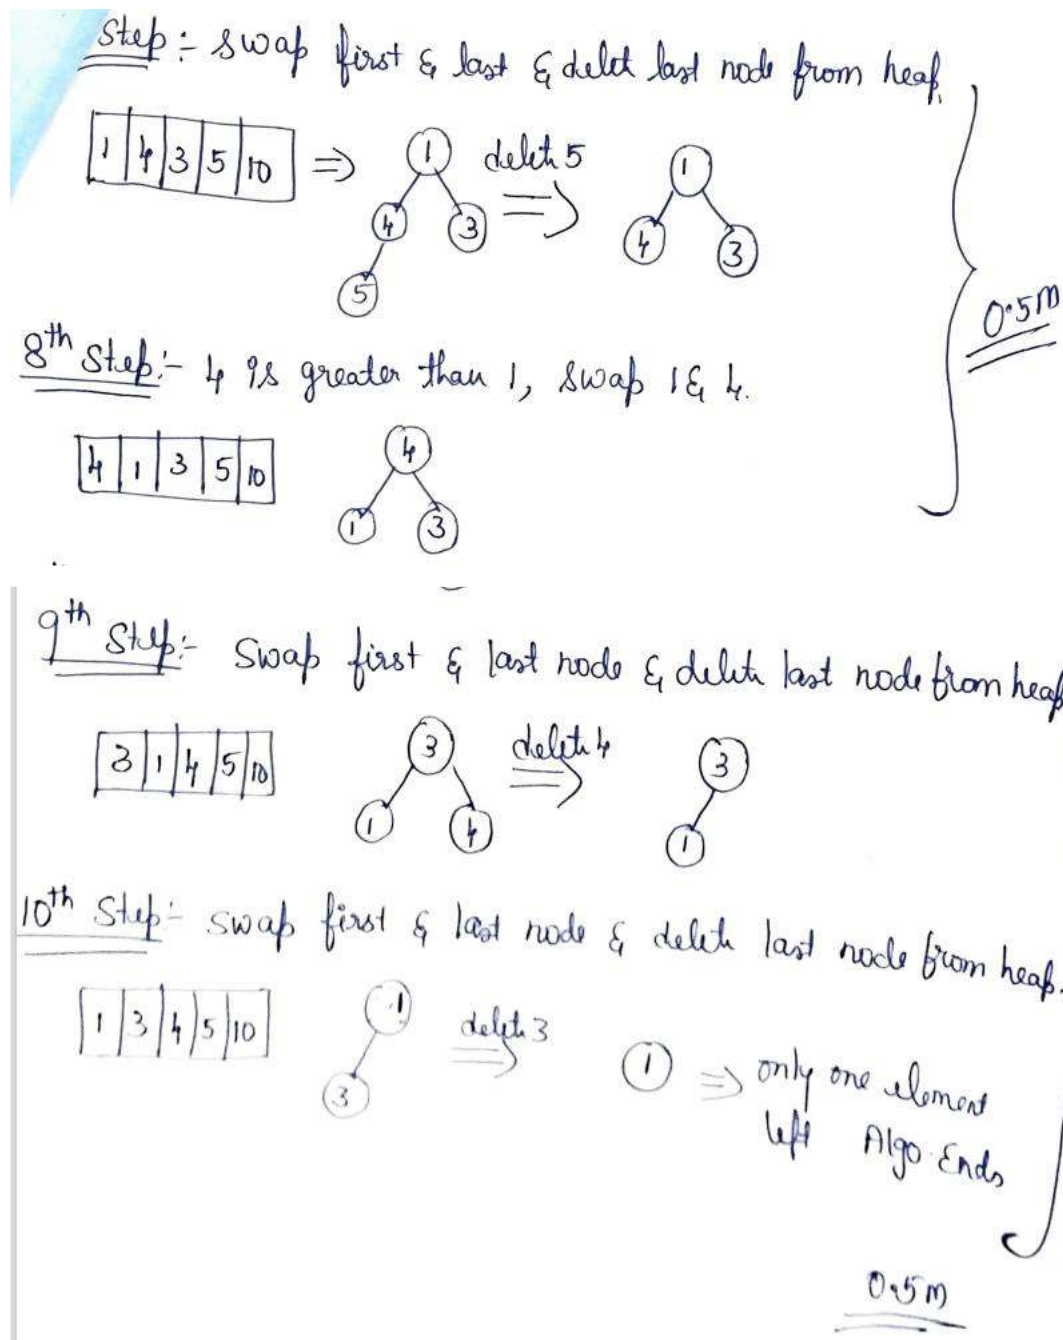 Step:- swap first & last & delet last node from heap.
1 4 3 5 10 ⇒ 1 4 3 5 delete 5 ⇒ 1 4 3
0.5m
8th Step:- 4 is greater than 1, swap 1 & 4.
4 1 3 5 10 4 1 3
9th Step:- Swap first & last node & delete last node from heap
3 1 4 5 10 3 1 4 delete 4 ⇒ 3 1
10th Step:- swap first & last node & delete last node from heap.
1 3 4 5 10 1 3 delete 3 ⇒ 1 ⇒ only one element
left Algo Ends
0.5m